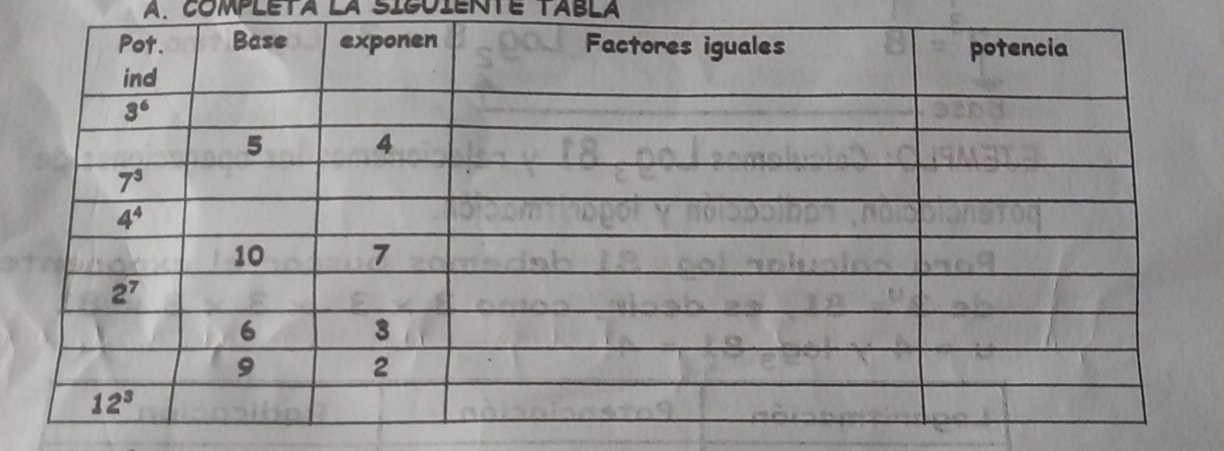 A. COMPLETA LA SIGUIENTE TABLA
Pot. ind Base exponen Factores iguales potencia
3⁶
5 4
7³
4⁴
10 7
2⁷
6 3
9 2
12³